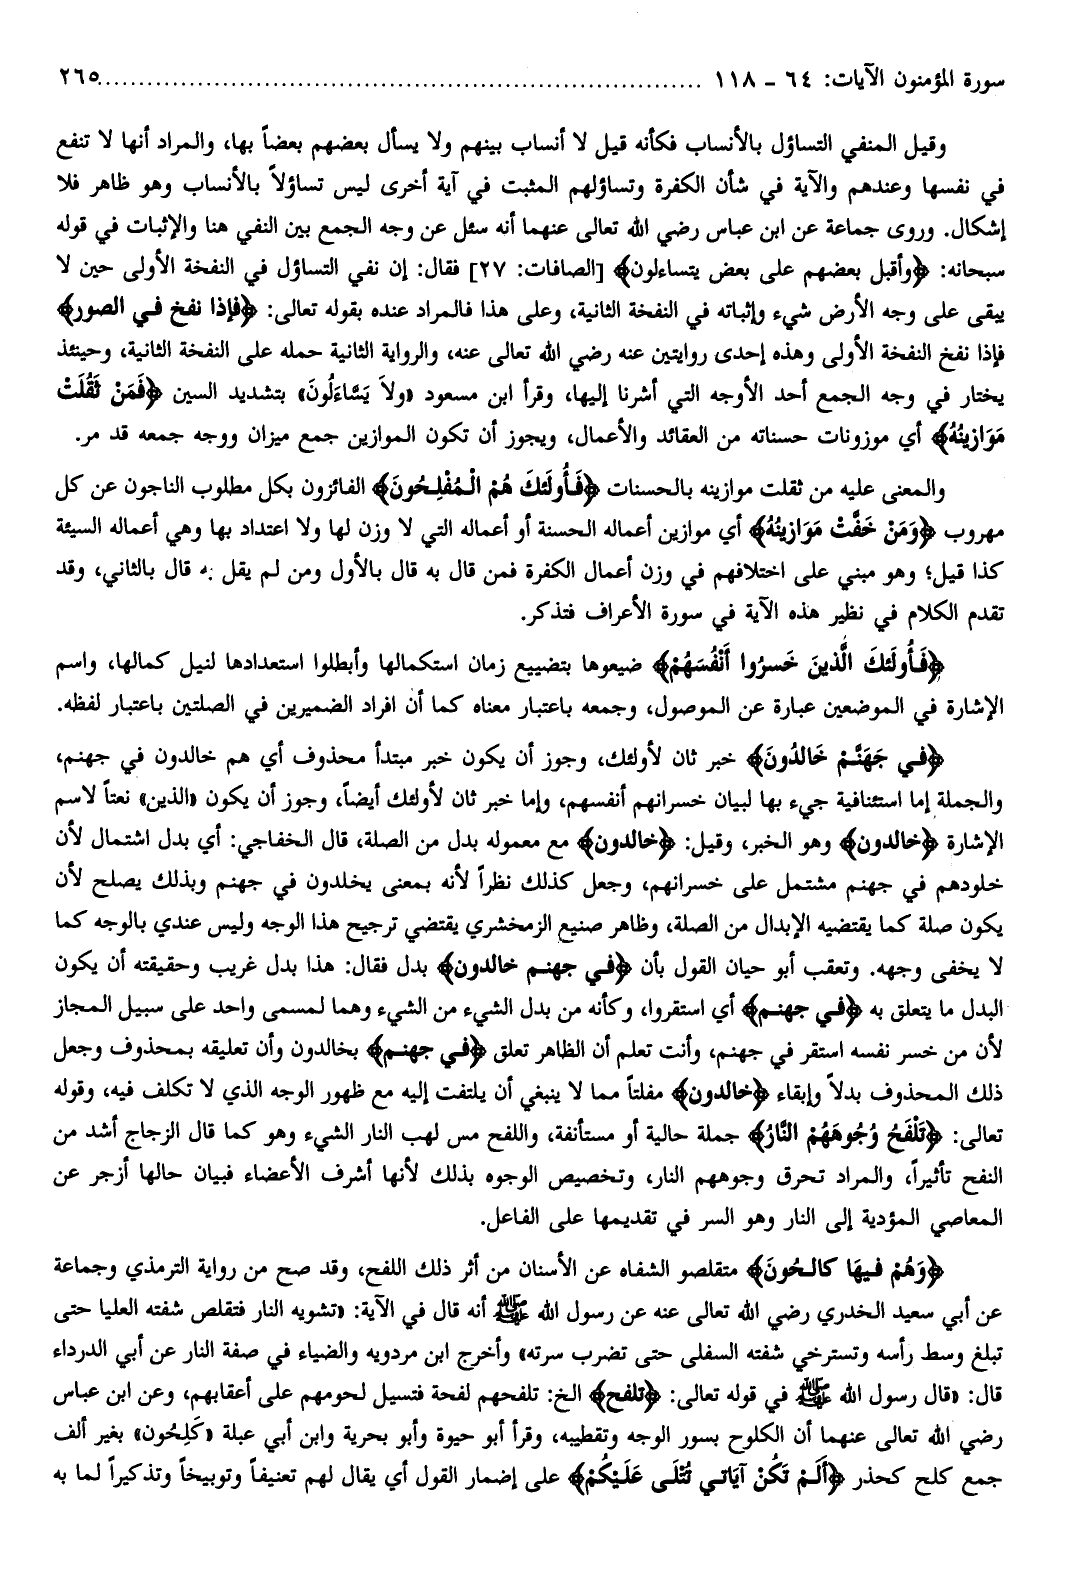 سورة المؤمنون الآيات: ٦٤ - ١١٨ ........................................................................ ٢٦٥
وقيل المنفي التساؤل بالأنساب فكأنه قيل لا أنساب بينهم ولا يسأل بعضهم بعضاً بها، والمراد أنها لا تنفع
في نفسها وعندهم والآية في شأن الكفرة وتساؤلهم المثبت في آية أخرى ليس تساؤلاً بالأنساب وهو ظاهر فلا
إشكال. وروى جماعة عن ابن عباس رضي الله تعالى عنهما أنه سئل عن وجه الجمع بين النفي هنا والإثبات في قوله
سبحانه: ﴿وأقبل بعضهم على بعض يتساءلون﴾ [الصافات: ٢٧] فقال: إن نفي التساؤل في النفخة الأولى حين لا
يبقى على وجه الأرض شيء وإثباته في النفخة الثانية، وعلى هذا فالمراد عنده بقوله تعالى: ﴿فإذا نفخ في الصور﴾
فإذا نفخ النفخة الأولى وهذه إحدى روايتين عنه رضي الله تعالى عنه، والرواية الثانية حمله على النفخة الثانية، وحينئذ
يختار في وجه الجمع أحد الأوجه التي أشرنا إليها، وقرأ ابن مسعود «ولاَ يَسَّاءَلُونَ» بتشديد السين ﴿فَمَنْ ثَقُلَتْ
مَوَازِينُهُ﴾ أي موزونات حسناته من العقائد والأعمال، ويجوز أن تكون الموازين جمع ميزان ووجه جمعه قد مر.
والمعنى عليه من ثقلت موازينه بالحسنات ﴿فَأُولَئكَ هُمْ الْمُفْلِحُونَ﴾ الفائزون بكل مطلوب الناجون عن كل
مهروب ﴿وَمَنْ خَفَّتْ مَوَازِينُهُ﴾ أي موازين أعماله الحسنة أو أعماله التي لا وزن لها ولا اعتداد بها وهي أعماله السيئة
كذا قيل؛ وهو مبني على اختلافهم في وزن أعمال الكفرة فمن قال به قال بالأول ومن لم يقل به قال بالثاني، وقد
تقدم الكلام في نظير هذه الآية في سورة الأعراف فتذكر.
﴿فَأُولَئكَ الَّذينَ خَسرُوا أَنْفُسَهُمْ﴾ ضيعوها بتضييع زمان استكمالها وأبطلوا استعدادها لنيل كمالها، واسم
الإشارة في الموضعين عبارة عن الموصول، وجمعه باعتبار معناه كما أن افراد الضميرين في الصلتين باعتبار لفظه.
﴿في جَهَنَّمْ خَالدُونَ﴾ خبر ثان لأولئك، وجوز أن يكون خبر مبتدأ محذوف أي هم خالدون في جهنم،
والجملة إما استئنافية جيء بها لبيان خسرانهم أنفسهم، وإما خبر ثان لأولئك أيضاً، وجوز أن يكون «الذين» نعتاً لاسم
الإشارة ﴿خالدون﴾ وهو الخبر، وقيل: ﴿خالدون﴾ مع معموله بدل من الصلة، قال الخفاجي: أي بدل اشتمال لأن
خلودهم في جهنم مشتمل على خسرانهم، وجعل كذلك نظراً لأنه بمعنى يخلدون في جهنم وبذلك يصلح لأن
يكون صلة كما يقتضيه الإبدال من الصلة، وظاهر صنيع الزمخشري يقتضي ترجيح هذا الوجه وليس عندي بالوجه كما
لا يخفى وجهه. وتعقب أبو حيان القول بأن ﴿في جهنم خالدون﴾ بدل فقال: هذا بدل غريب وحقيقته أن يكون
البدل ما يتعلق به ﴿في جهنم﴾ أي استقروا، وكأنه من بدل الشيء من الشيء وهما لمسمى واحد على سبيل المجاز
لأن من خسر نفسه استقر في جهنم، وأنت تعلم أن الظاهر تعلق ﴿في جهنم﴾ بخالدون وأن تعليقه بمحذوف وجعل
ذلك المحذوف بدلاً وإبقاء ﴿خالدون﴾ مفلتاً مما لا ينبغي أن يلتفت إليه مع ظهور الوجه الذي لا تكلف فيه، وقوله
تعالى: ﴿تَلْفَحُ وُجُوهَهُمْ النَّارُ﴾ جملة حالية أو مستأنفة، واللفح مس لهب النار الشيء وهو كما قال الزجاج أشد من
النفح تأثيراً، والمراد تحرق وجوههم النار، وتخصيص الوجوه بذلك لأنها أشرف الأعضاء فبيان حالها أزجر عن
المعاصي المؤدية إلى النار وهو السر في تقديمها على الفاعل.
﴿وَهُمْ فيهَا كالحُونَ﴾ متقلصو الشفاه عن الأسنان من أثر ذلك اللفح، وقد صح من رواية الترمذي وجماعة
عن أبي سعيد الخدري رضي الله تعالى عنه عن رسول الله ﷺ أنه قال في الآية: «تشويه النار فتقلص شفته العليا حتى
تبلغ وسط رأسه وتسترخي شفته السفلى حتى تضرب سرته» وأخرج ابن مردويه والضياء في صفة النار عن أبي الدرداء
قال: «قال رسول الله ﷺ في قوله تعالى: ﴿تلفح﴾ الخ: تلفحهم لفحة فتسيل لحومهم على أعقابهم، وعن ابن عباس
رضي الله تعالى عنهما أن الكلوح بسور الوجه وتقطيبه، وقرأ أبو حيوة وأبو بحرية وابن أبي عبلة «كَلِحُون» بغير ألف
جمع كلح كحذر ﴿أَلَمْ تَكُنْ آيَاتي تُتْلَى عَلَيْكُمْ﴾ على إضمار القول أي يقال لهم تعنيفاً وتوبيخاً وتذكيراً لما به